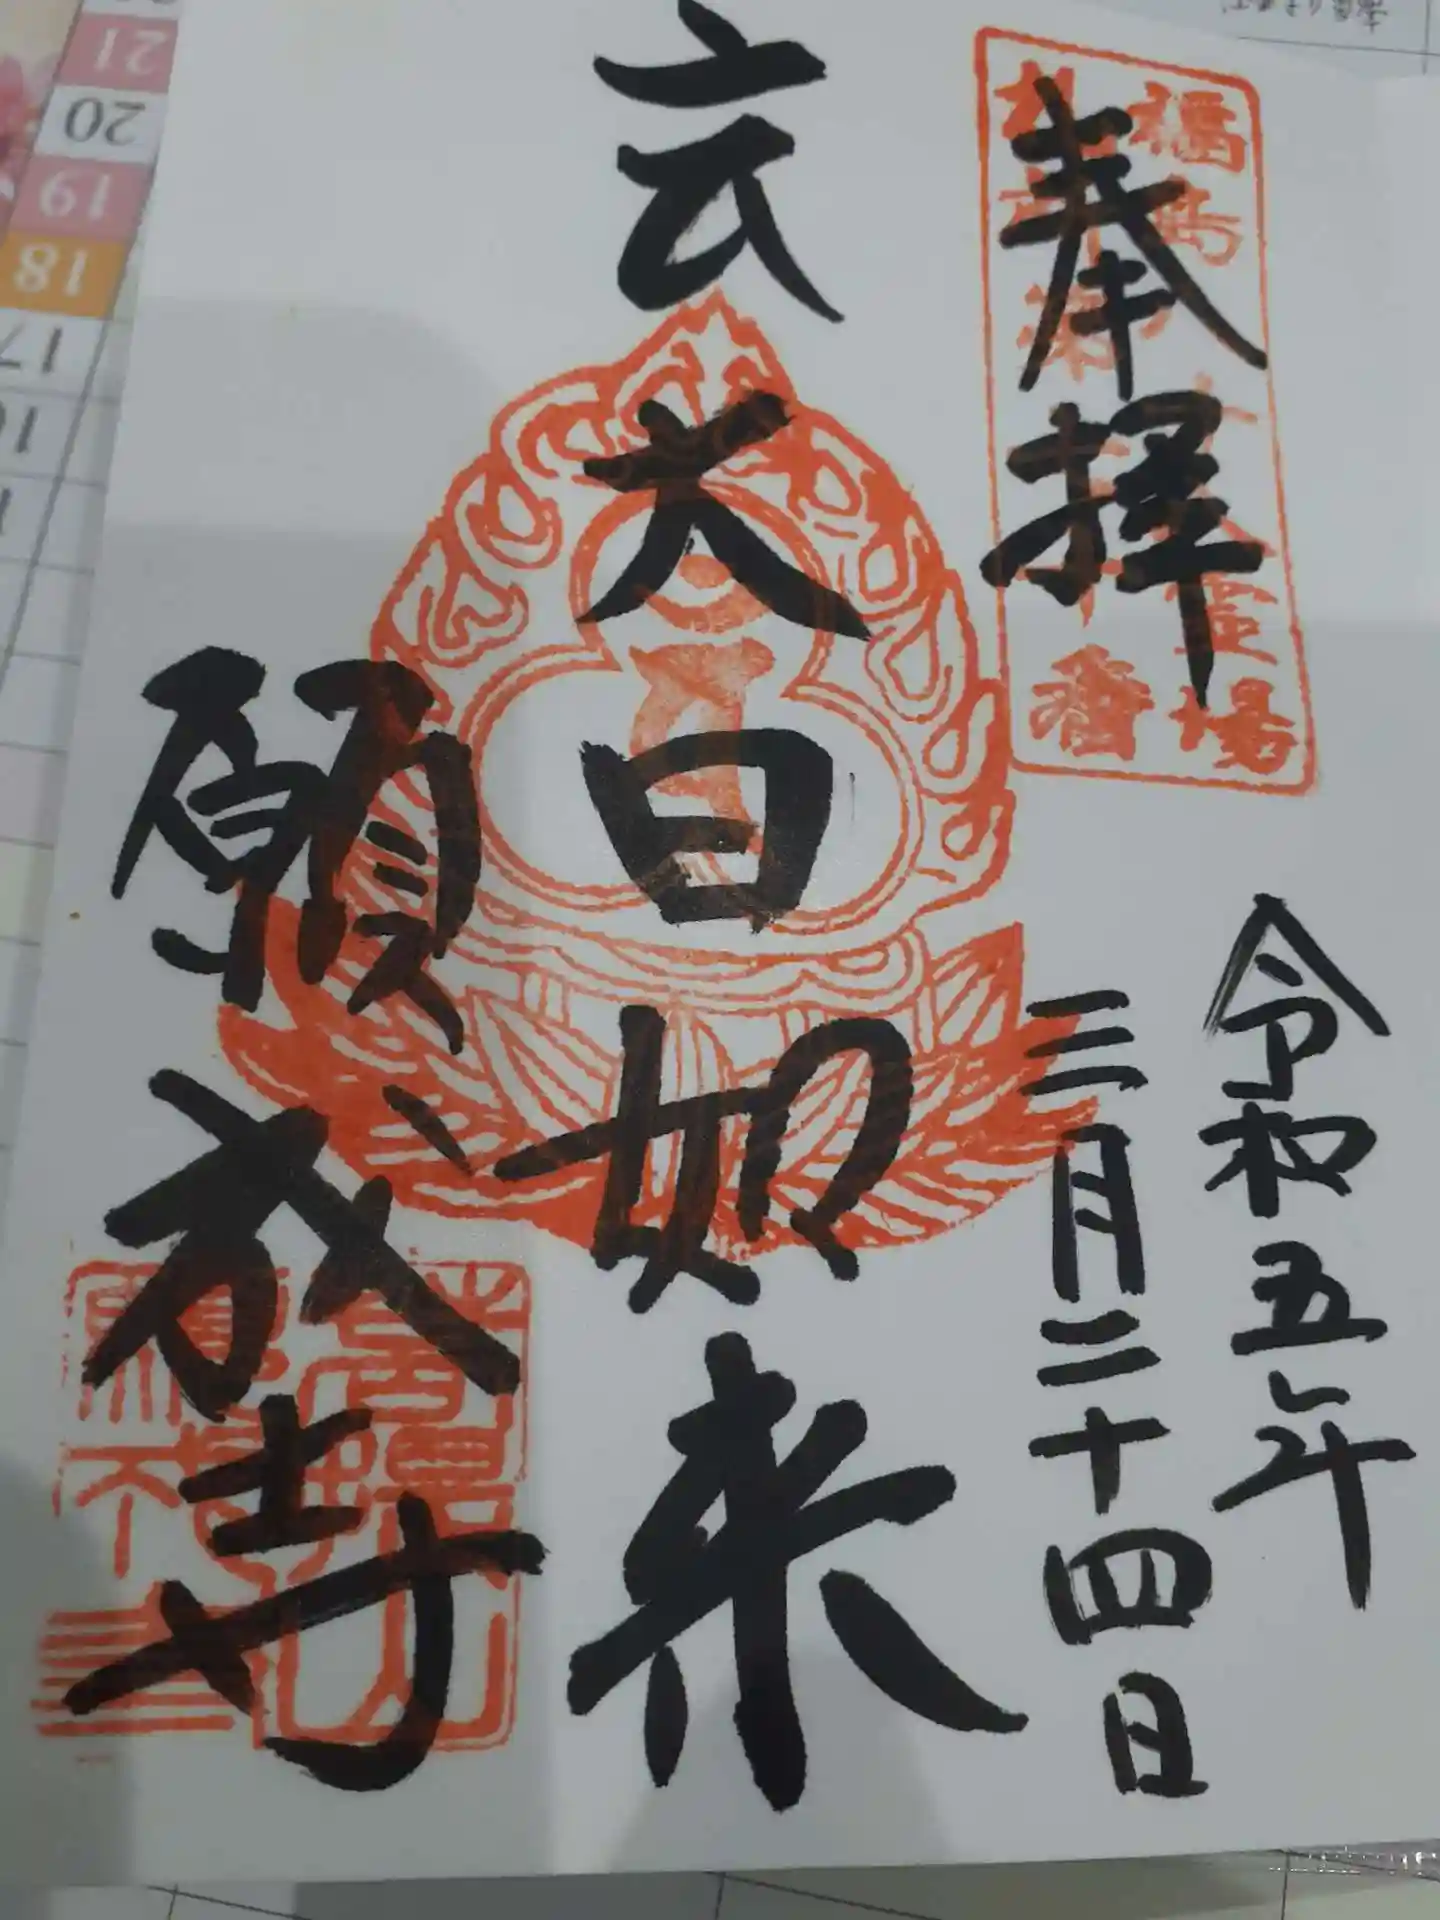 奉拝
福島
霊場
番
令和五年
三月二十四日
大日如来
願成寺
21
20
19
18
17
16